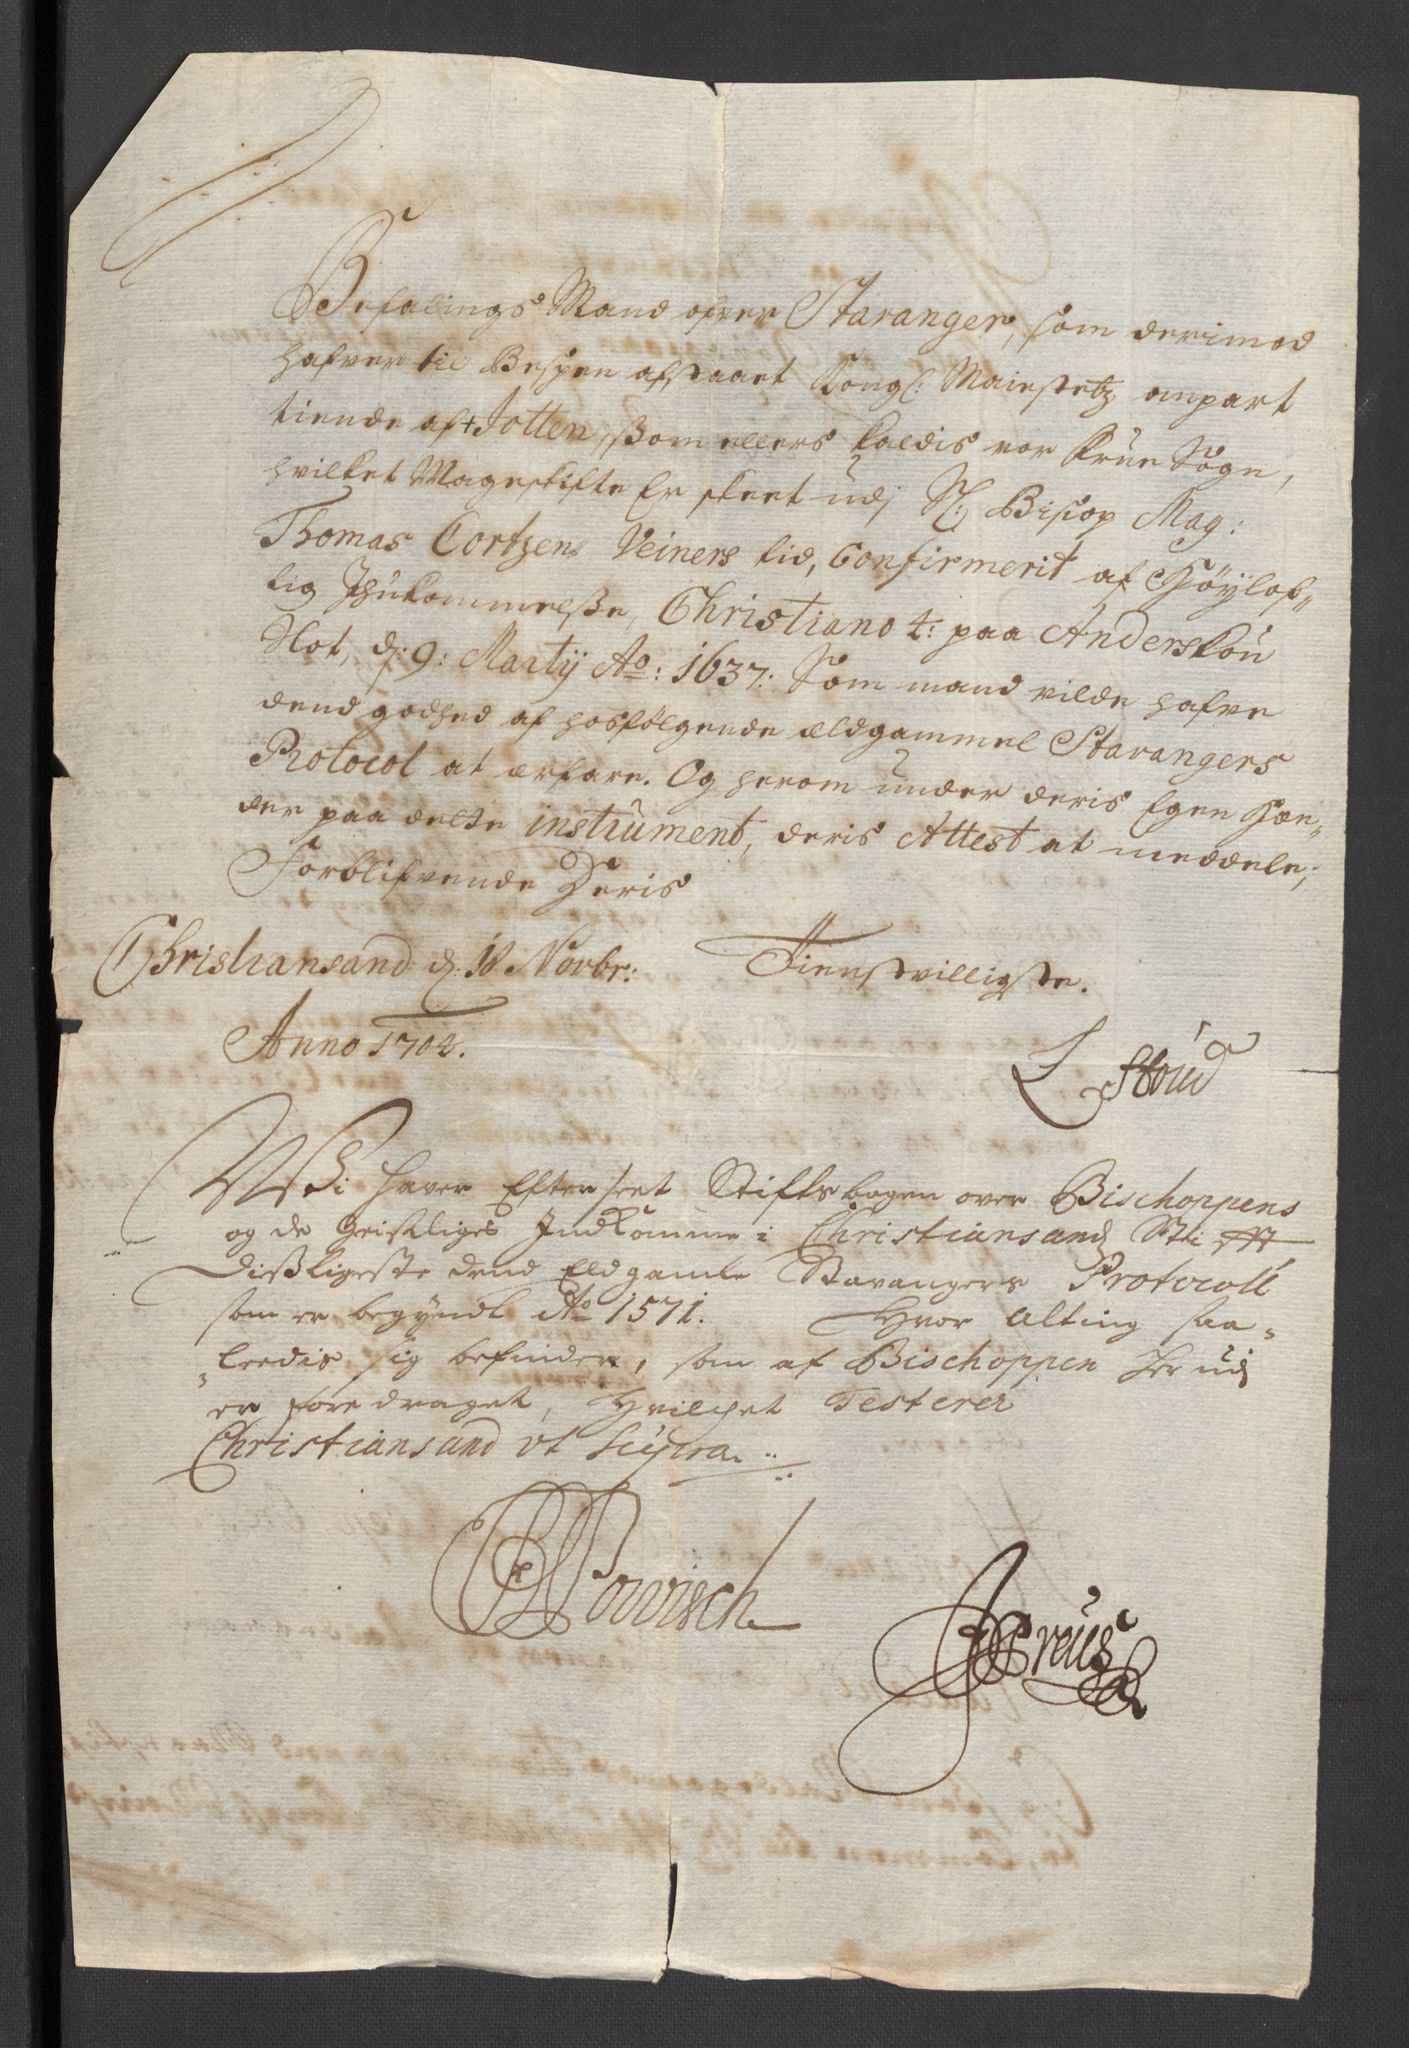 Befalings Mand ofver Stavanger, som derimod
hafver til Bespen afstaaet Kongl: Maiestetz anpart
tiende af + Jotten, ßom ellers kaldis vor Frue Sogn,
hvilket Mageskifte Er skeet udj Sl: Bisiop Mag:
Thomas Cortzen Veiners tid, Confirmerit af Höylof„
lig Ihukommelße, Christiano 4: paa Anderskou
Slot, d: 9: Martij Ao: 1637: Som mand vilde hafve
dend godhed af hosfølgende ældgammel Stavangers
Protocol at ærfare. Og herom under deris Egen Hæn„
der paa dette instrument, deris Attest at meddele;
Forblifvende Deris
Christiansand d: 18 Novbr: Tienstvilligste.
Anno 1704.
L Stoud
Wi haver Efterseet Stiftsbogen over Bischoppens
og de Geistliges Indkomme i Christiansand Sti
dißligeste dend Eldgamle Stavangers Protocoll
som er begyndt Ao 1571. Hvor Alting saa„
„leedis sig befinder, som af Bischoppen her udj
er fore draget, Hvilchet Testerer
Christiansand ut supra.
Powisch
Preus